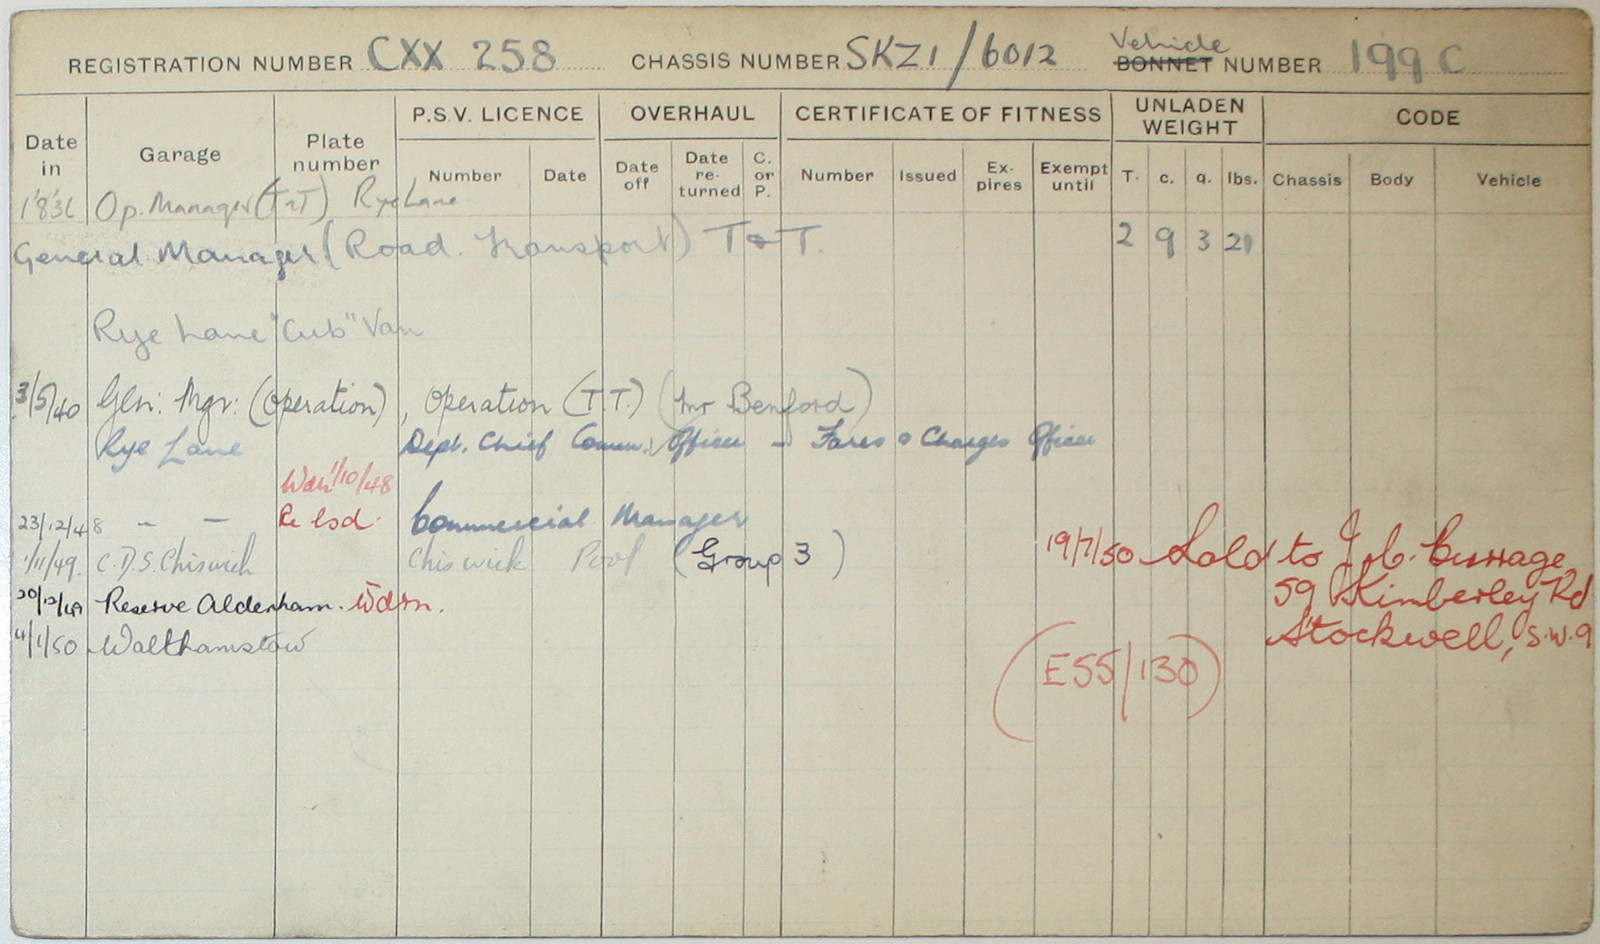 REGISTRATION NUMBER CXX 258 CHASSIS NUMBER SKZ1/6012 Vehicle BONNET NUMBER 199 C
Date in Garage Plate number P.S.V. LICENCE OVERHAUL CERTIFICATE OF FITNESS UNLADEN WEIGHT CODE
Number Date Date off Date re-turned C. or P. Number Issued Ex-pires Exempt until T. C. Q. lbs. Chassis Body Vehicle
1'8'36 Op. Manager (T&T) Rye Lane
General Manager (Road Transport) T&T. 2 9 3 21
Rye Lane "Cub" Van
3/5/40 Gen: Mgr: (Operation), Operation (T.T.) (Mr Benford)
Rye Lane Dept. Chief Comm. Officer - Fares & Charges Officer
Wdn 1/10/48
23/12/48 " - Re lsd. Commercial Manager
1/11/49. C.D.S. Chiswick Chiswick Pool (Group 3)
19/7/50 Sold to J. C. Currage
20/12/49 Reserve Aldenham. Wdrn.
59 Kimberley Rd
4/1/50 Walthamstow
Stockwell, S.W.9
(E55/130)